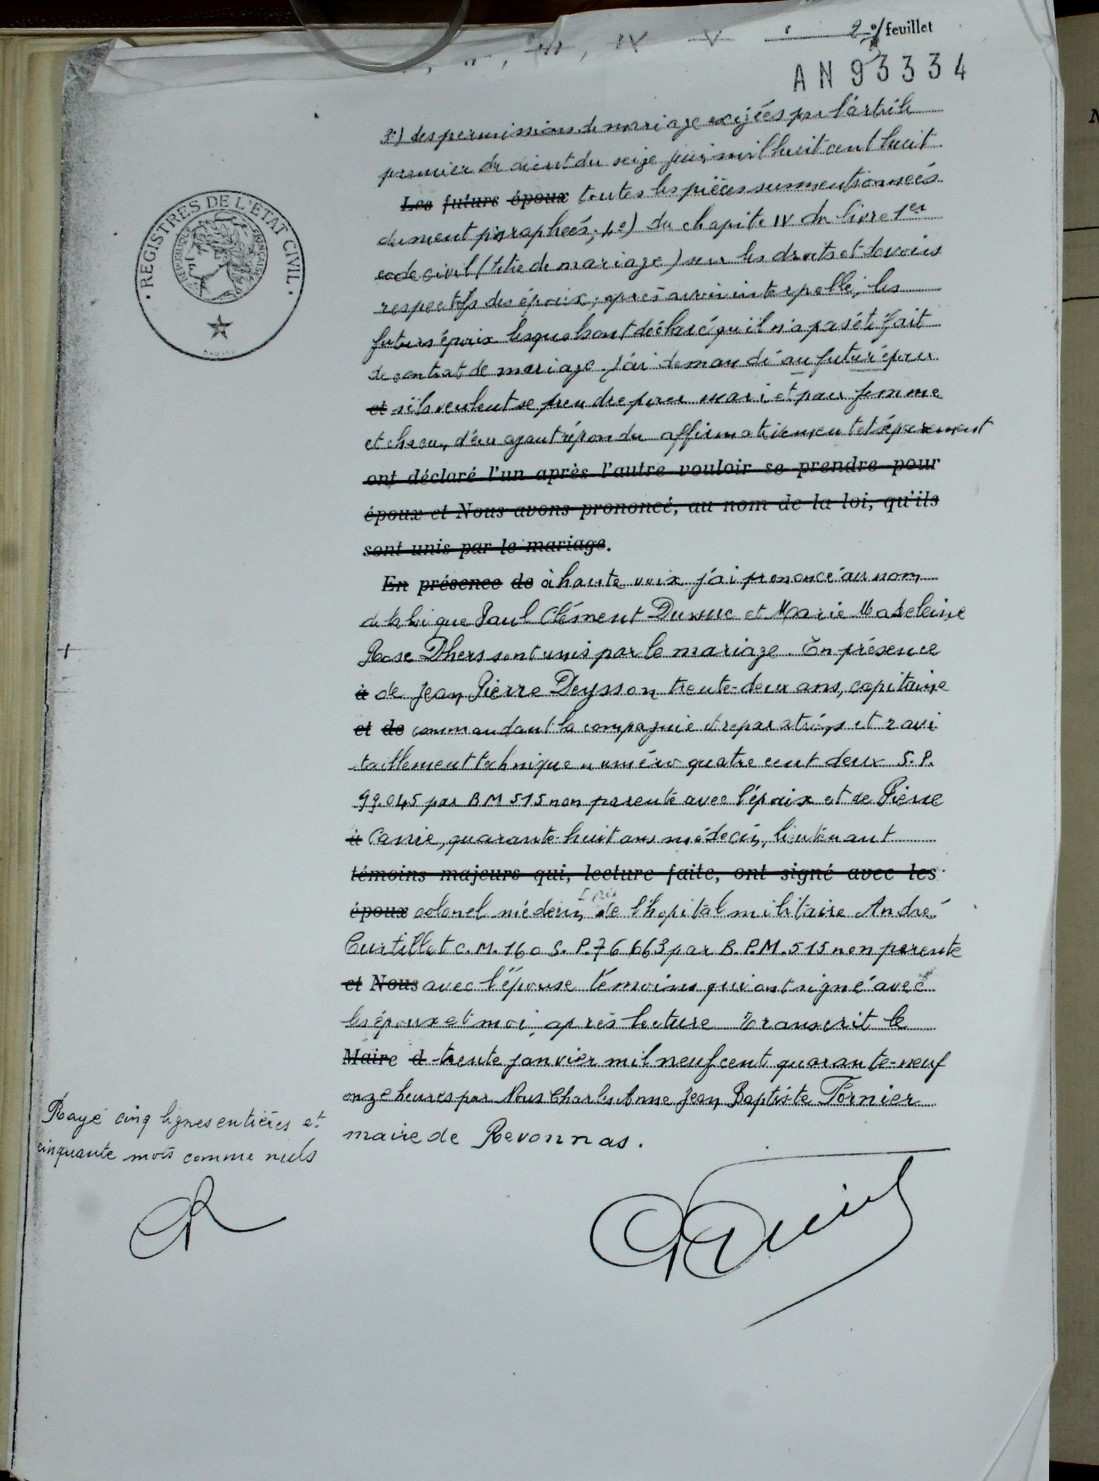 2e/feuillet
AN 93334
REGISTRES DE L'ETAT CIVIL
REPUBLIQUE FRANÇAISE
3°) des permissions de mariage exigées par l'article
premier du décret du seize juin mil huit cent huit
Les futurs époux toutes les pièces susmentionnées
dument paraphées, 4e) du chapitre IV du livre 1er
code civil (titre de mariage) sur les droits et devoirs
respectifs des époux, après avoir interpellé, les
futurs époux lesquels ont déclaré qu'il n'a pas été fait
de contrat de mariage. J'ai demandé au futur époux
et s'ils veulent se prendre pour mari et pour femme
et chacun d'eux ayant répondu affirmativement et séparément
ont déclaré l'un après l'autre vouloir se prendre pour
époux et Nous avons prononcé, au nom de la loi, qu'ils
sont unis par le mariage.
En présence de à haute voix j'ai prononcé au nom
de la loi que Paul Clément et Marie Madeleine
Rose Dhers sont unis par le mariage. En présence
à de Jean Pierre Deysson trente-deux ans, capitaine
et de commandant la compagnie de réparations et ravi
taillement technique numéro quatre cent deux S.P.
99.045 par BM 515 non parente avec l'époux et de Pierre
à Carrie, quarante-huit ans médecin, lieutenant
témoins majeurs qui, lecture faite, ont signé avec les
époux colonel médecin de l'hopital militaire André
Curtillet C.M. 160 S.P. 76 663 par B.P.M. 515 non parente
et Nous avec l'épouse témoins qui ont signé avec
les époux et moi, après lecture Transcrit le
Maire d trente janvier mil neuf cent quarante-neuf
onze heures par Nous Charles Anne Jean Baptiste Fornier
maire de Revonnas.
Rayé cinq lignes entières et
cinquante mots comme nuls